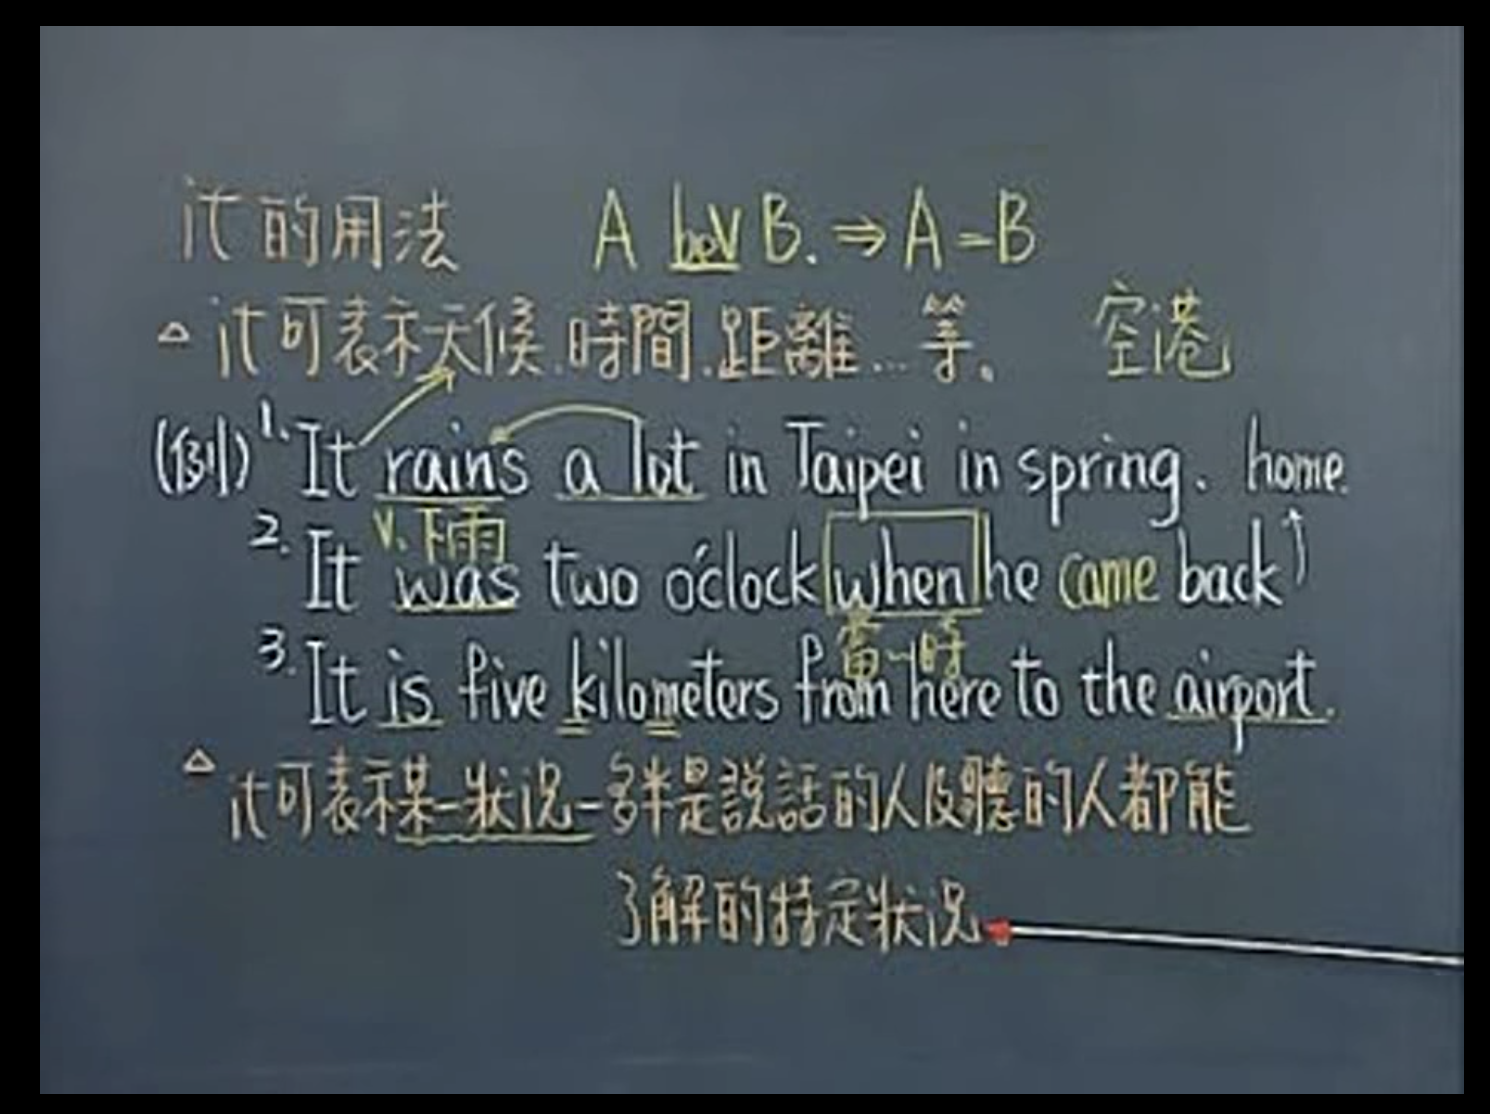 it的用法 A beV B. ⇒ A=B
△ it可表示天候.時間.距離...等。 空港
(例) 1. It rains a lot in Taipei in spring. home.
v.下雨
2. It was two o'clock when he came back
當~時
3. It is five kilometers from here to the airport.
△ it可表示某一狀況-多半是說話的人及聽的人都能
了解的特定狀況